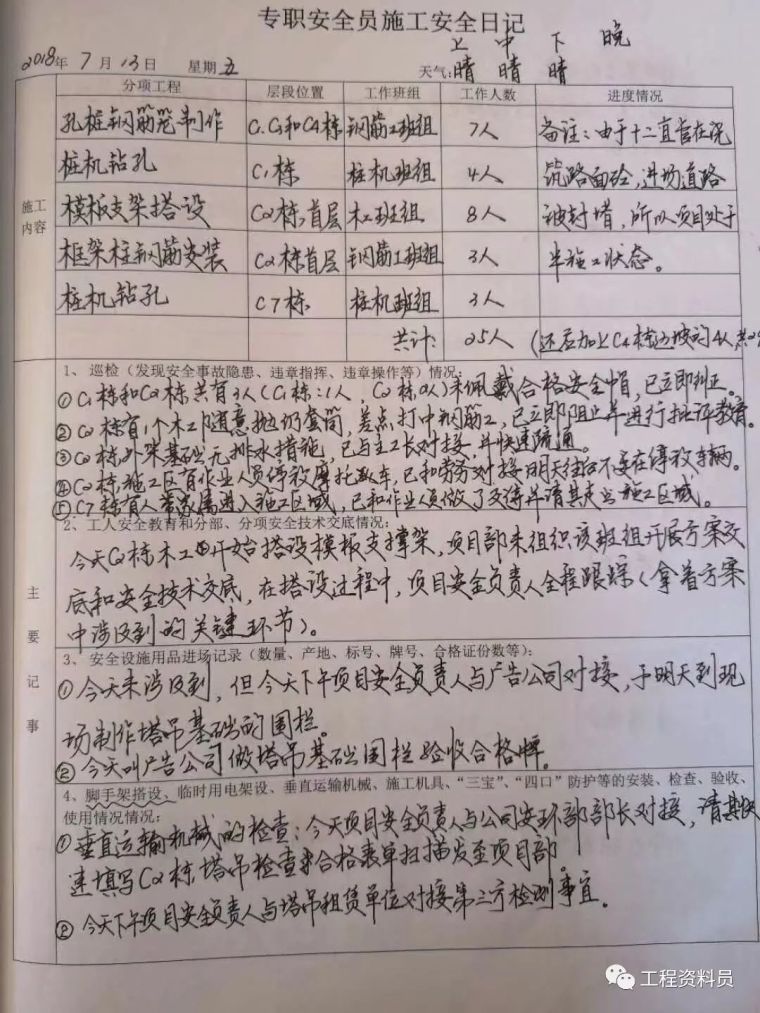 专职安全员施工安全日记
上 中 下 晚
2018年 7 月 13日 星期 五 天气: 晴 晴 晴
分项工程 层段位置 工作班组 工作人数 进度情况
施工内容
孔桩钢筋笼制作 C1、C3和C4栋 钢筋工班组 7人 备注:由于十二直管在浇
桩机钻孔 C1栋 桩机班组 4人 筑路面砼,进场道路
模板支架搭设 C2栋,首层 木工班组 8人 被封堵,所以项目处于
框架柱钢筋安装 C2栋首层 钢筋工班组 3人 半施工状态。
桩机钻孔 C7栋 桩机班组 3人
共计: 25人 (还后加上C4栋边坡的4人,共29
主要记事
1、巡检(发现安全事故隐患、违章指挥、违章操作等)情况:
①C1栋和C2栋共有3人(C1栋:1人,C2栋2人)未佩戴合格安全帽,已立即纠正。
②C2栋有1个木工随意抛扔套筒,差点打中钢筋工,已立即阻止并进行批评教育。
③C2栋外架基础无排水措施,已与主工长对接并快速疏通。
④C2栋施工区有作业人员停放摩托车,已和劳务对接明天往后不要在停放车辆。
⑤C7栋有人带家属进入施工区域,已和作业人员做了交待并请其走出施工区域。
2、工人安全教育和分部、分项安全技术交底情况:
今天C2栋木工开始搭设模板支撑架,项目部未组织该班组开展方案交
底和安全技术交底,在搭设过程中,项目安全负责人全程跟踪(拿着方案
中涉及到的关键环节)。
3、安全设施用品进场记录(数量、产地、标号、牌号、合格证份数等):
①今天未涉及到,但今天下午项目安全负责人与广告公司对接,于明天到现
场制作塔吊基础的围栏。
②今天叫广告公司做塔吊基础围栏验收合格牌。
4、脚手架搭设、临时用电架设、垂直运输机械、施工机具、“三宝”、“四口”防护等的安装、检查、验收、
使用情况情况:
①垂直运输机械的检查:今天项目安全负责人与公司安环部部长对接,请其快
速填写C2栋塔吊检查合格表单扫描发至项目部。
②今天下午项目安全负责人与塔吊租赁单位对接第三方检测事宜。
工程资料员